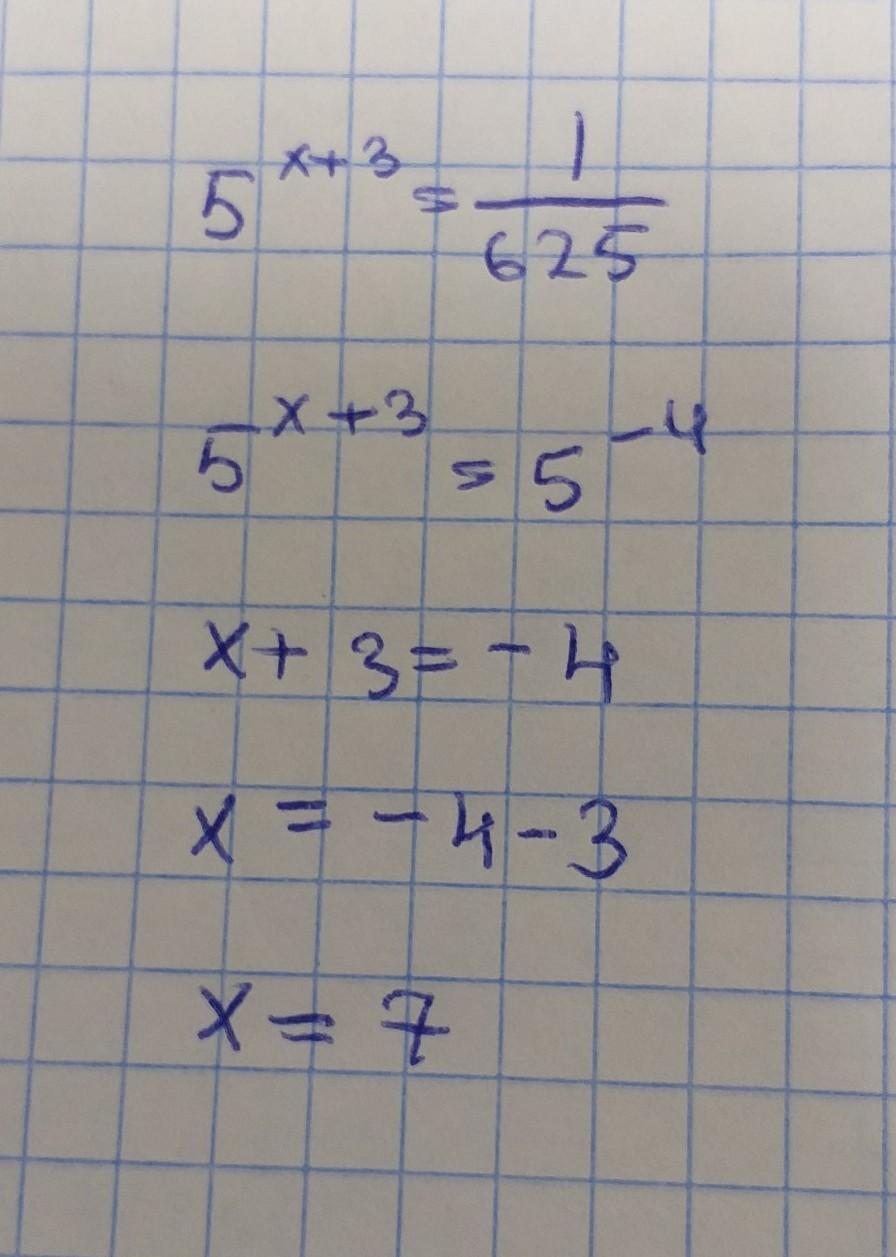 5^{x+3} = \frac{1}{625}
5^{x+3} = 5^{-4}
x + 3 = -4
x = -4 - 3
x = 7